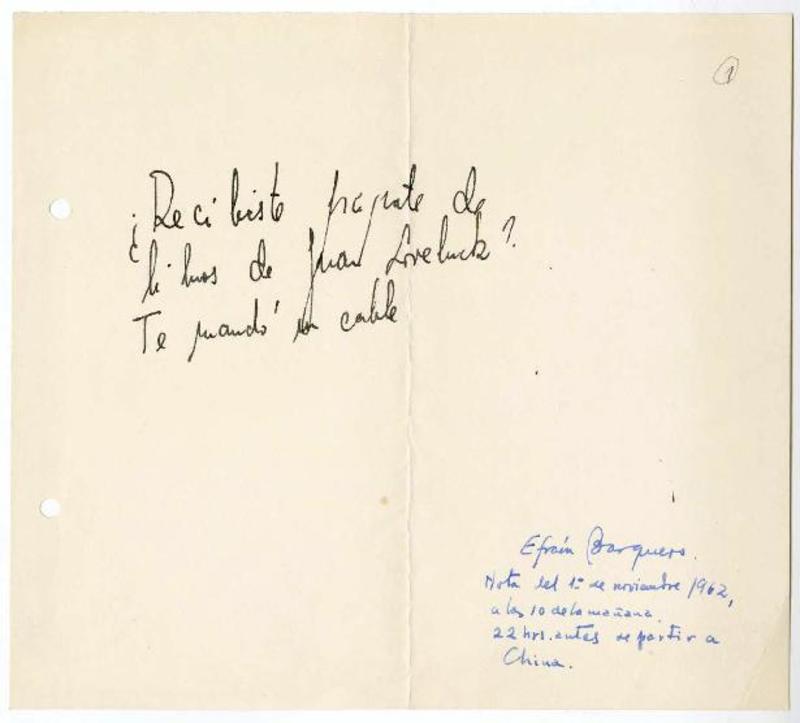 1
¿Recibiste paquete de
libros de Juan Loveluck?
Te mandó un cable
Efraín Barquero.
Nota del 1º de noviembre 1962,
a las 10 de la mañana.
22 hrs. antes de partir a
China.